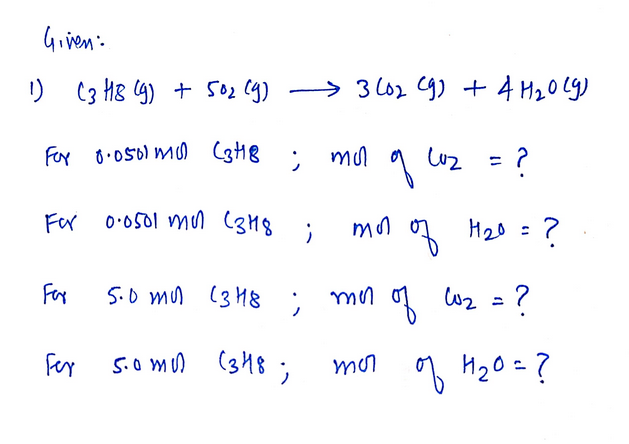 Given:
1) C3H8 (g) + 5O2 (g) ⟶ 3CO2 (g) + 4H2O (g)
For 0.0501 mol C3H8 ; mol of CO2 = ?
For 0.0501 mol C3H8 ; mol of H2O = ?
For 5.0 mol C3H8 ; mol of CO2 = ?
For 5.0 mol C3H8 ; mol of H2O = ?